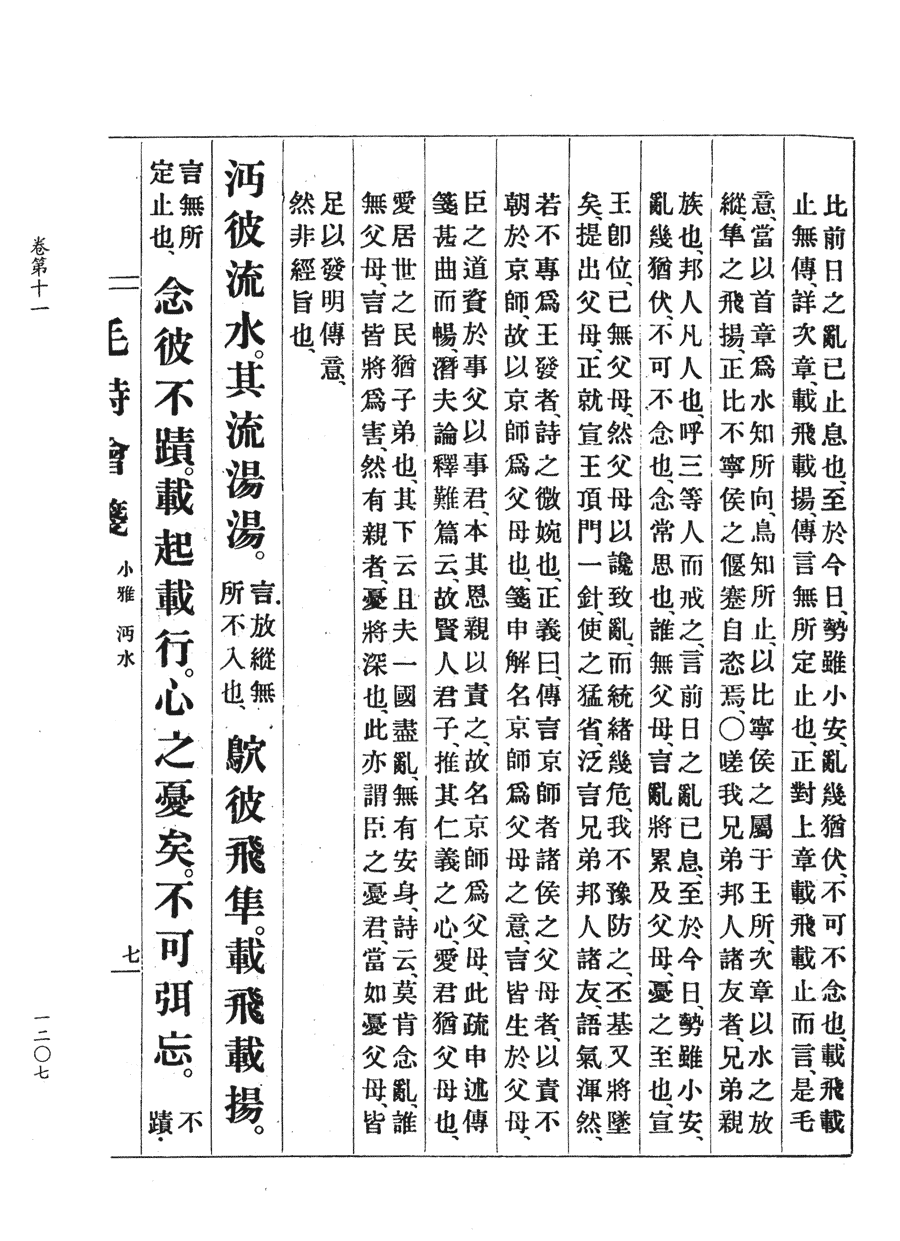 比前日之亂已止息也、至於今日、勢雖小安、亂幾猶伏、不可不念也、載飛載
止無傳、詳次章、載飛載揚、傳言無所定止也、正對上章載飛載止而言、是毛
意、當以首章爲水知所向、鳥知所止、以比寧侯之屬于王所、次章以水之放
縱、隼之飛揚、正比不寧侯之偃蹇自恣焉、〇嗟我兄弟邦人諸友者、兄弟親
族也、邦人凡人也、呼三等人而戒之、言前日之亂已息、至於今日、勢雖小安、
亂幾猶伏、不可不念也、念常思也、誰無父母、言亂將累及父母、憂之至也、宣
王卽位、已無父母、然父母以讒致亂、而統緒幾危、我不豫防之、丕基又將墜
矣、提出父母、正就宣王頂門一針、使之猛省、泛言兄弟邦人諸友、語氣渾然、
若不專爲王發者、詩之微婉也、正義曰、傳言京師者諸侯之父母者、以責不
朝於京師、故以京師爲父母也、箋申解名京師爲父母之意、言皆生於父母、
臣之道資於事父以事君、本其恩親以責之、故名京師爲父母、此疏申述傳
箋甚曲而暢、潛夫論釋難篇云、故賢人君子、推其仁義之心、愛君猶父母也、
愛居世之民猶子弟也、其下云且夫一國盡亂、無有安身、詩云、莫肯念亂、誰
無父母、言皆將爲害、然有親者、憂將深也、此亦謂臣之憂君、當如憂父母、皆
足以發明傳意、
然非經旨也、
沔彼流水。其流湯湯。
言放縱無
所不入也、
鴥彼飛隼。載飛載揚。
言無所
定止也、
念彼不蹟。載起載行。心之憂矣。不可弭忘。
不
蹟、
毛詩會箋 小雅 沔水 七
卷第十一
一二〇七